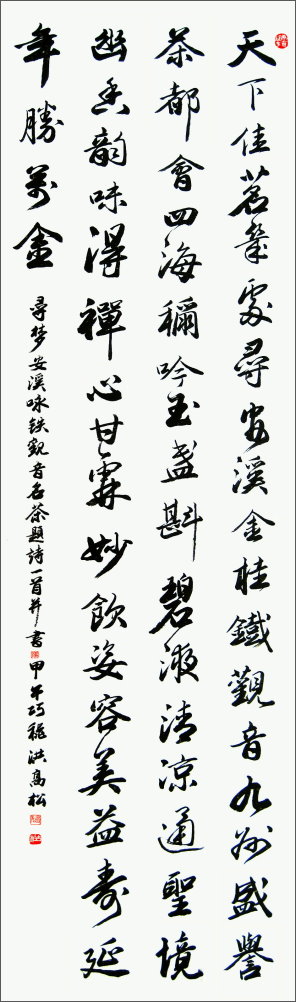 天下佳茗處尋安溪金桂鐵觀音九州盛譽
茶都會四海稱吟玉盞斟碧液清凉通聖境
幽香韻味得禪心甘霖妙飲姿容美益壽延
年勝萬金
尋梦安溪咏鉄觀音名茶題詩一首并書 甲午巧秋 洪高松